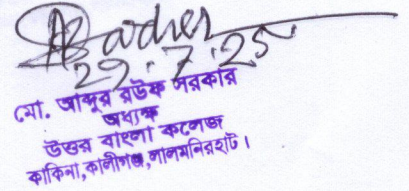 29.7.25
মো. আব্দুর রউফ সরকার
অধ্যক্ষ
উত্তর বাংলা কলেজ
কাকিনা, কালীগঞ্জ, লালমনিরহাট।